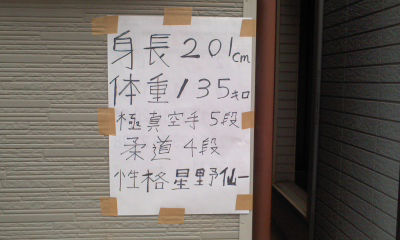 身長201cm
体重135キロ
極真空手5段
柔道4段
性格星野仙一